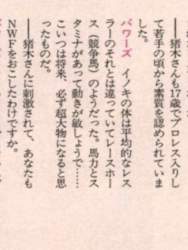 ――猪木さんも17歳でプロレス入りし
て若手の頃から素質を認められていま
した。
パワーズ　イノキの体は平均的なレス
ラーのそれとは違っていてレースホー
ス（競争馬）のようだった。馬力とス
タミナがあって動きが敏しょうで……
こいつは将来、必ず超大物になると思
ったものだ。
――猪木さんに刺激されて、あなたも
NWFをおこしたわけですか。